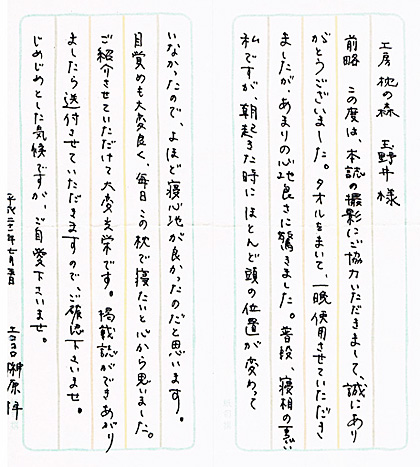 工房 枕の森 玉野井様
前略 この度は、本誌の撮影にご協力いただきまして、誠にあり
がとうございました。タオルをまいて、一晩使用させていただき
ましたが、あまりの心地良さに驚きました。普段、寝相の悪い
私ですが、朝起きた時にほとんど頭の位置が変わって
いなかったので、よほど寝心地が良かったのだと思います。
目覚めも大変良く、毎日この枕で寝たいと心から思いました。
ご紹介させていただけて大変光栄です。掲載誌ができあがり
ましたら送付させていただきますので、ご確認下さいませ。
じめじめとした気候ですが、ご自愛下さいませ。
平成二十一年七月 エココロ 榊原